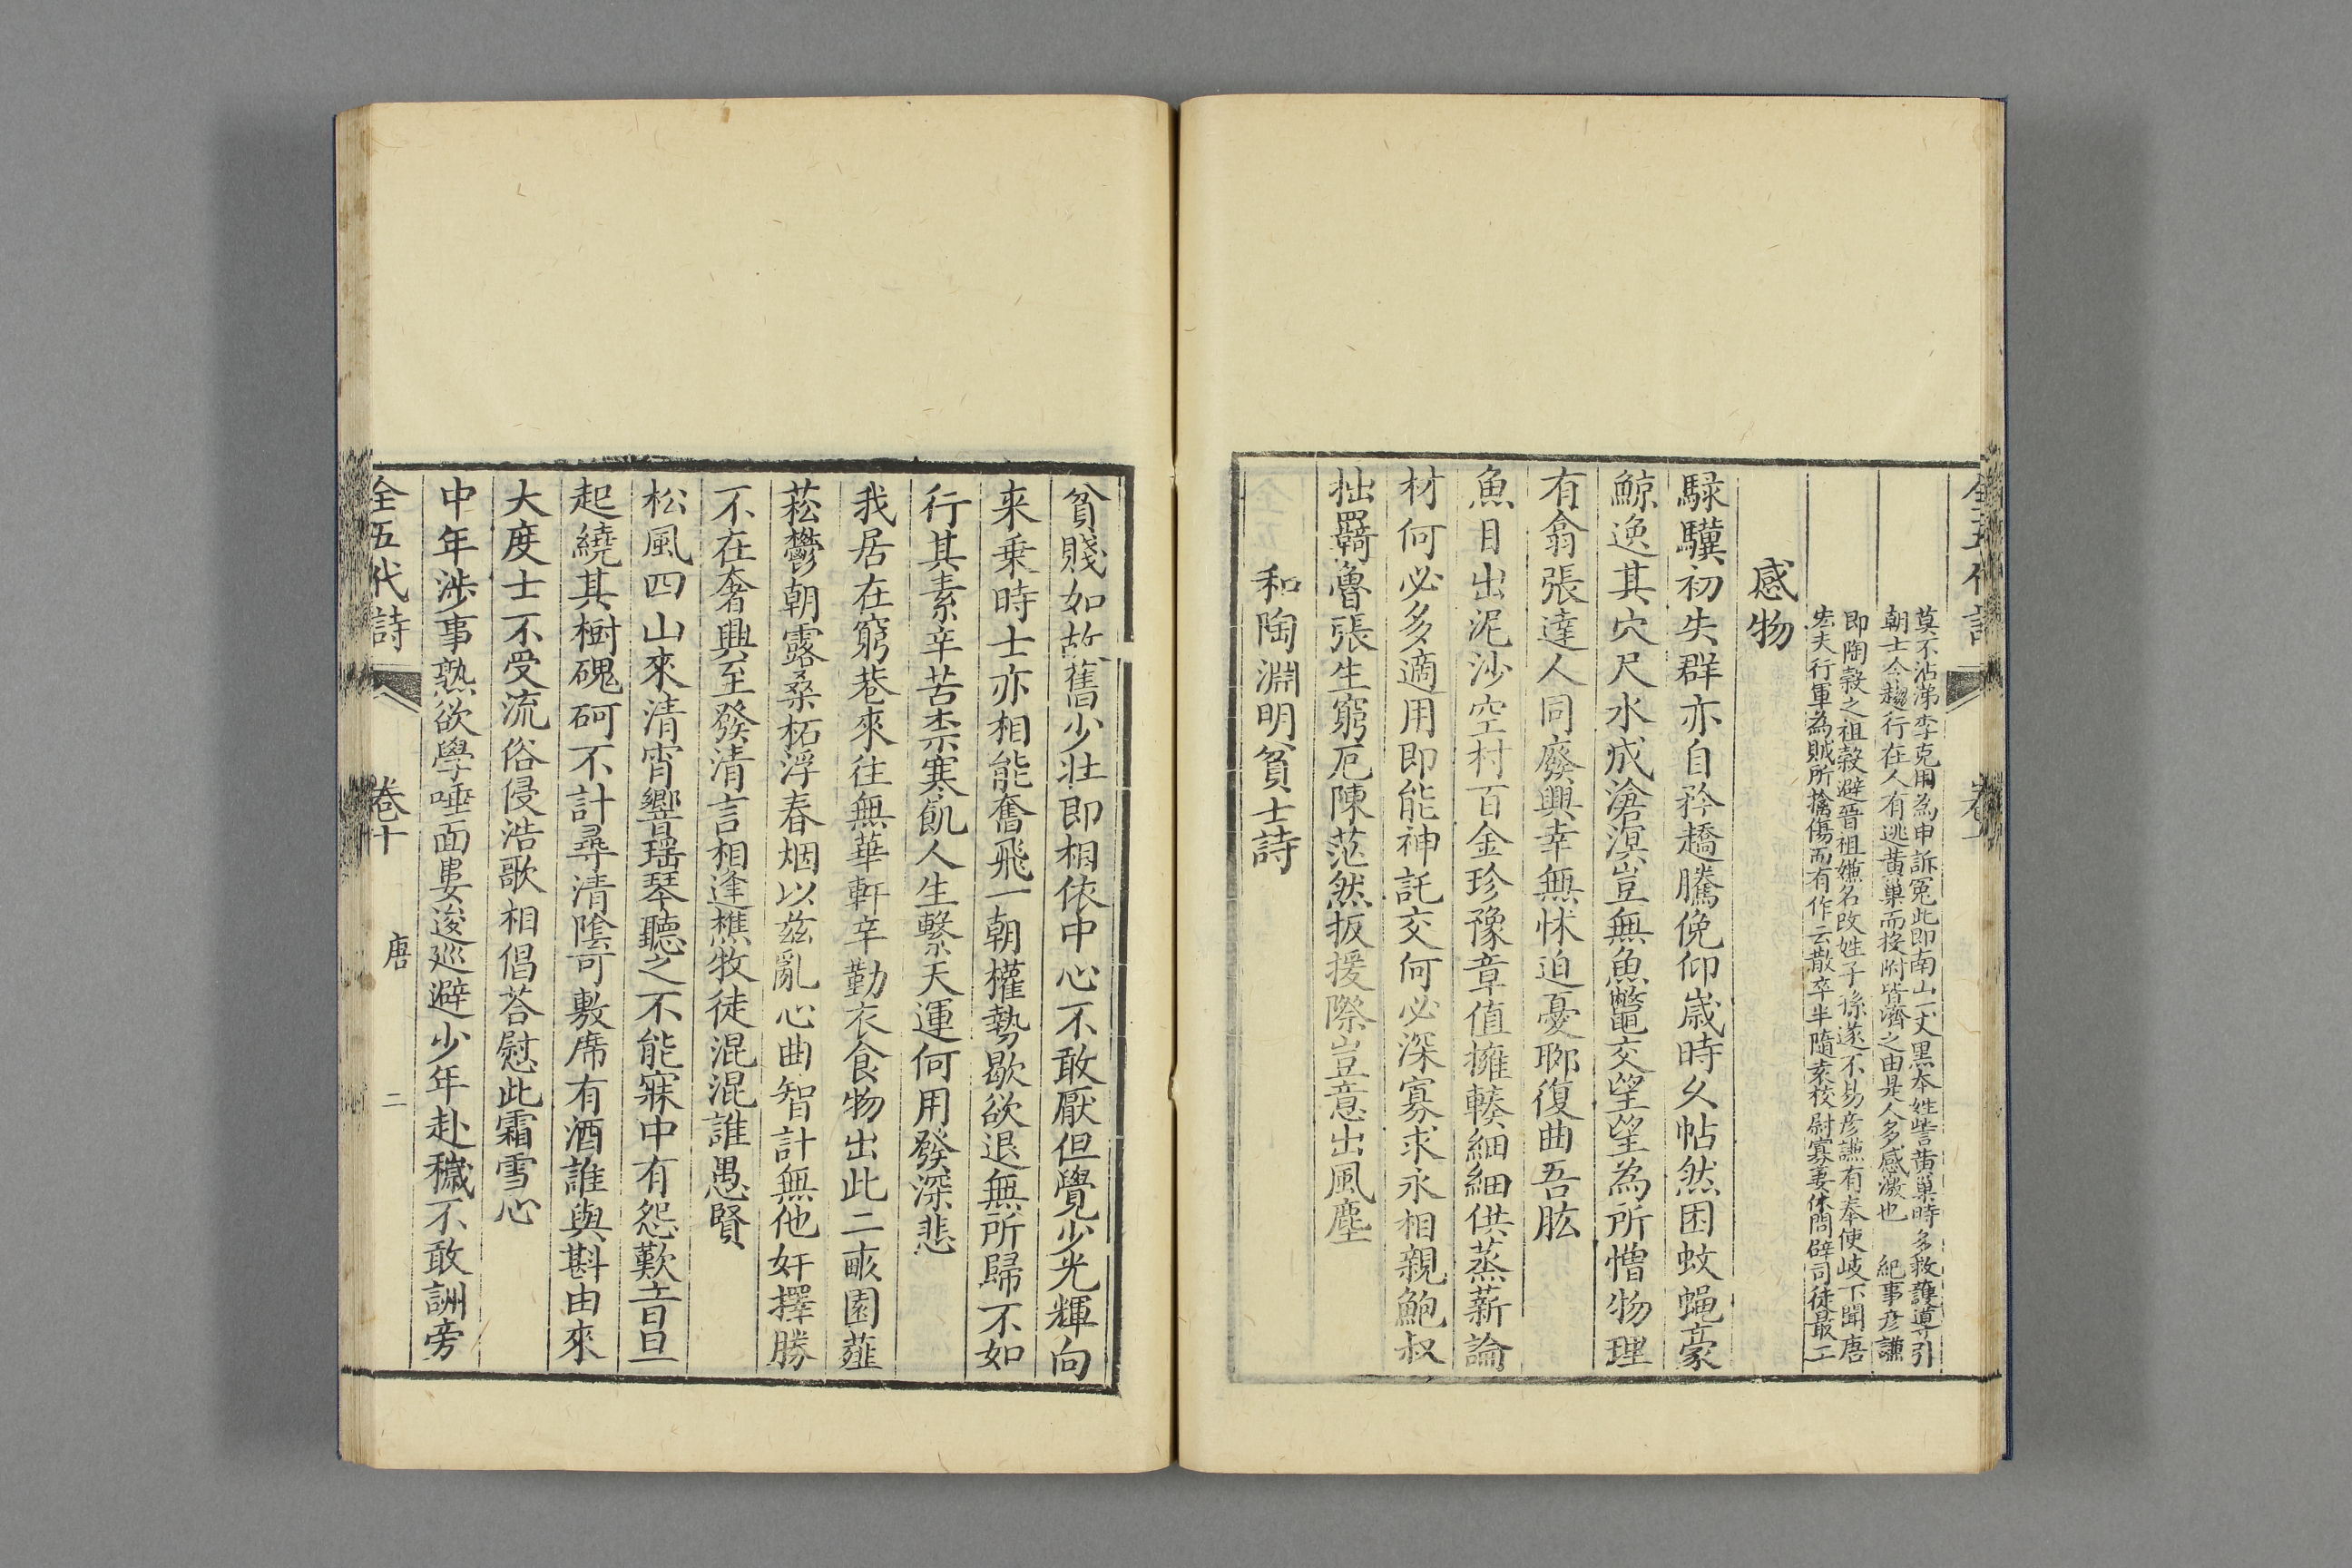 全五代詩
卷十
莫不沾涕李克用為申訴冤此即南山一丈黑本姓訾黃巢時多救護導引
朝士令趨行在人有逃黃巢而投附皆濟之由是人多感激也 紀事彥謙
即陶穀之祖穀避晉祖嫌名改姓子孫遂不易彥謙有奉使岐下聞唐
弘夫行軍為賊所擒傷而有作云散卒半隨袁校尉寡妻休問辟司徒最工
感物
騄驥初失群亦自矜趫騰俛仰歲時久帖然困蚊蠅豪
鯨逸其穴尺水成滄溟豈無魚鼈交望望為所憎物理
有翕張達人同廢興幸無怵迫憂聊復曲吾肱
魚目出泥沙空村百金珍豫章值擁轃細細供蒸薪論
材何必多適用即能神託交何必深寡求永相親鮑叔
拙羇魯張生窮厄陳茫然扳援際豈意出風塵
和陶淵明貧士詩
貧賤如故舊少壯即相依中心不敢厭但覺少光輝向
来乗時士亦相能奮飛一朝權勢歇欲退無所歸不如
行其素辛苦柰寒飢人生繫天運何用發深悲
我居在窮巷來往無華軒辛勤衣食物出此二畝園薤
菘鬱朝露桑柘浮春烟以兹亂心曲智計無他奸擇勝
不在奢興至發清言相逢樵牧徒混混誰愚賢
松風四山來清宵響瑶琴聽之不能寐中有怨歎音旦
起繞其樹磈砢不計尋清陰可敷席有酒誰與斟由來
大度士不受流俗侵浩歌相倡荅慰此霜雪心
中年涉事熟欲學唾面婁逡巡避少年赴穢不敢詶旁
全五代詩
卷十
唐
二